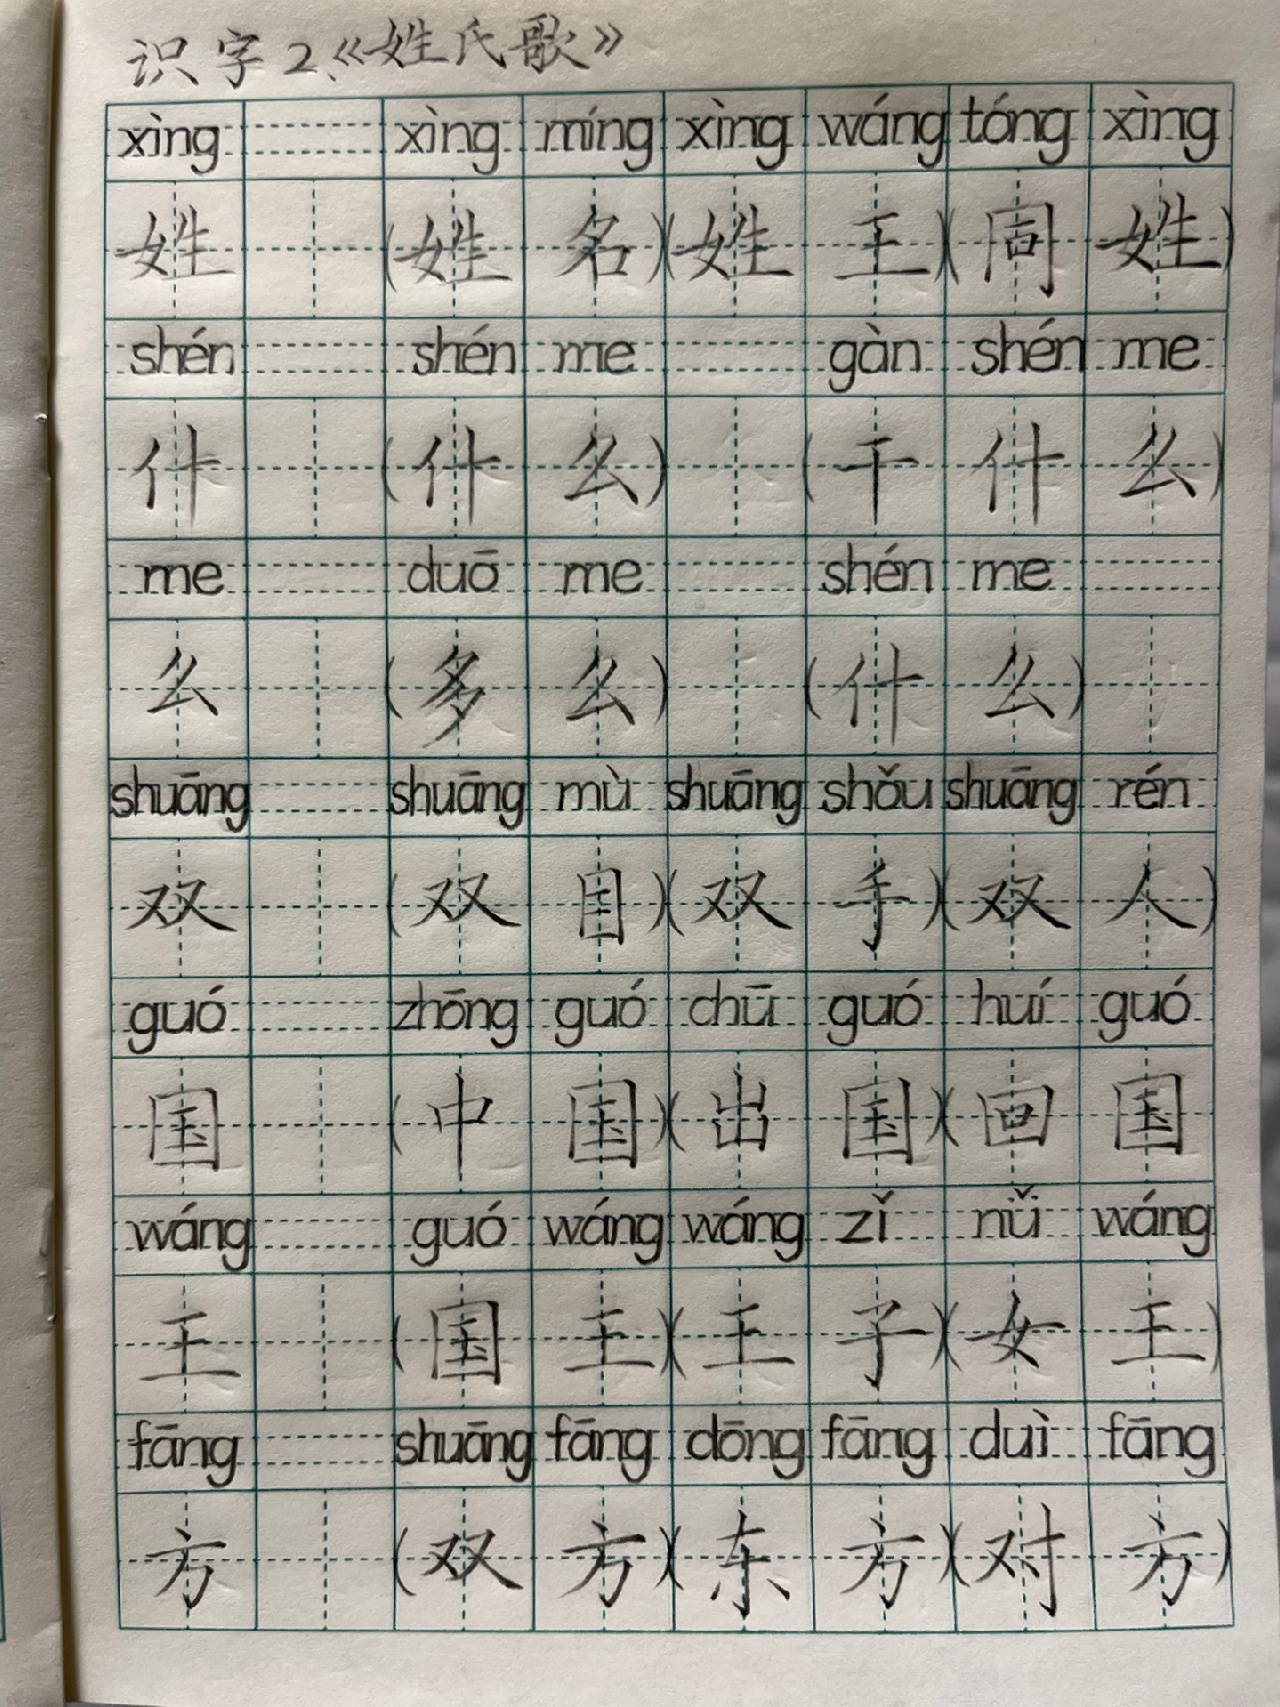 识字2、《姓氏歌》
xìng xìng míng xìng wáng tóng xìng
姓 (姓名)(姓王)(同姓)
shén shén me gàn shén me
什 (什么) (干什么)
me duō me shén me
么 (多么) (什么)
shuāng shuāng mù shuāng shǒu shuāng rén
双 (双目)(双手)(双人)
guó zhōng guó chū guó huí guó
国 (中国)(出国)(回国
wáng guó wáng wáng zǐ nǚ wáng
王 (国王)(王子)(女王)
fāng shuāng fāng dōng fāng duì fāng
方 (双方)(东方)(对方)